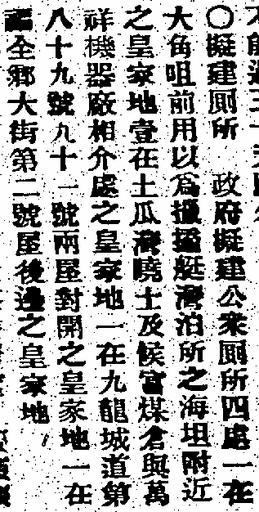 ○擬建厠所　政府擬建公衆厠所四處一在
大角咀前用以爲艇灣泊所之海坦附近
之皇家地壹在土瓜灣曉士及侯富煤倉與萬
祥機器廠相介處之皇家地一在九龍城道第
八十九號九十一號兩屋對開之皇家地一在
全鄉大街第二號屋後邊之皇家地